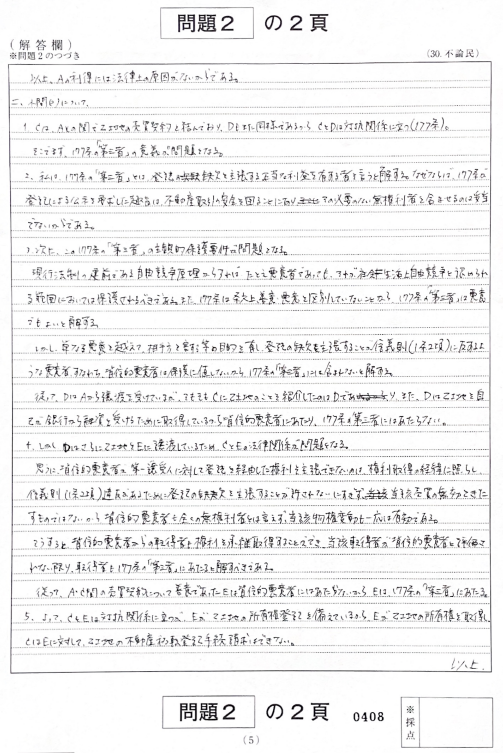 問題2 の2頁
(解答欄)
※問題2のつづき
(30.不論民)
以上、Aの利得には法律上の原因がないからである。
二、小問(2)について
1. Cは、Aとの間で乙土地の売買契約を結んでおり、Dもまた同様であるからCとDは対抗関係に立つ(177条)。
そこでまず、177条の「第三者」の意義が問題となる。
2. 私は、177条の「第三者」とは、登記の欠缺を主張する正当な利益を有する者を言うと解する。なぜならば、177条が
登記による公示を要求した趣旨は、不動産取引の安全を図ることにあり、その必要のない無権利者を含ませるのは妥当
でないからである。
3. 次に、この177条の「第三者」の主観的保護要件が問題となる。
現行法制の建前である自由競争原理からすれば、たとえ悪意者であっても、それが社会生活上自由競争と認められ
る範囲においては保護されるべきである。また、177条は条文上、善意・悪意を区別していないことから、177条の「第三者」は悪意
でもよいと解する。
しかし、単なる悪意を越えて、相手方を害する等の目的を有し、登記の欠缺を主張することが信義則(1条2項)に反するよ
うな悪意者、すなわち、背信的悪意者は保護に値しないから、177条の「第三者」には含まれないと解する。
従って、DはAから譲渡を受けているが、そもそもCに乙土地のことを紹介したのはDであり、また、Dは乙土地を自
己が銀行から融資を受けるために取得しているから背信的悪意者にあたり、177条の「第三者」にはあたらない。
4. しかし、Dはさらに乙土地をEに譲渡しているため、CとEの法律関係が問題となる。
思うに、背信的悪意者が第一譲受人に対して登記を経由した権利を主張できないのは、権利取得の経緯に照らし、
信義則(1条2項)違反があるために登記の欠缺を主張することが許されないにすぎず、当該売買の無効をきたす
ものではないから背信的悪意者も全くの無権利者とは言えず、当該物権変動も一応は有効である。
そうすると、背信的悪意者からの取得者も権利を承継取得することができ、当該取得者が背信的悪意者と評価さ
れない限り、取得者も177条の「第三者」にあたると解すべきである。
従って、A・C間の売買契約について善意であったEは背信的悪意者にはあたらないから、Eは、177条の「第三者」にあたる。
5. よって、CとEは対抗関係に立つが、Eが乙土地の所有権登記を備えているから、Eが乙土地の所有権を取得し、
CはEに対して、乙土地の不動産移転登記手続請求はできない。
以上
問題2 の2頁
0408
※採点
(5)